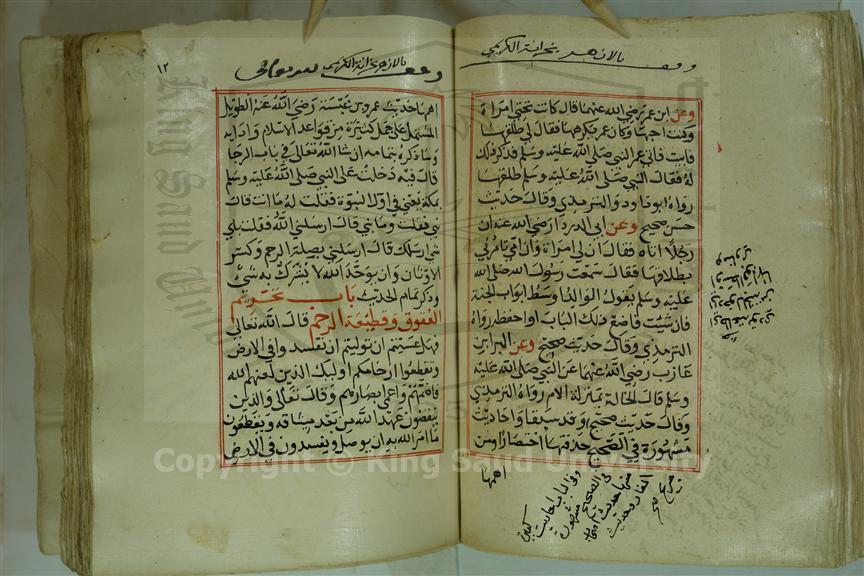 وقف بالازهر بخزانة الكريمي
وعن ابن عمر رضي الله عنهما قال كانت تحتي امراة
وكنت احبها وكان عمر يكرهها فقال لي طلقها
فابيت فاتي عمر النبي صلى الله عليه وسلم فذكر ذلك
له فقال النبي صلى الله عليه وسلم طلقها
رواه ابو داود والترمذي وقال حديث
حسن صحيح وعن ابي الدردا رضي الله عنه ان
رجلا اتاه فقال ان لي امراة وان امي تامرني
بطلاقها فقال سمعت رسول الله صلى الله
عليه وسلم يقول الوالد اوسط ابواب الجنة
فان شيت فاضع ذلك الباب او احفظه رواه
الترمذي وقال حديث صحيح وعن البرا بن
عازب رضي الله عنهما عن النبي صلى الله عليه
وسلم قال الخالة بمنزلة الام رواه الترمذي
وقال حديث صحيح وقد سبقا واحاديث
مشهورة في الصحيح حذفتها اختصارا ومن
اهمها
وقف بالازهر بخزانة الكريمي
١٢
اهمها حديث عمرو بن عبسة رضي الله عنه الطويل
المشتمل على جمل كثيرة من قواعد الاسلام وادابه
وساذكره بتمامه ان شا الله تعالى في باب الرجا
قال فيه دخلت على النبي صلى الله عليه وسلم
بمكة يعني في اول النبوة فقلت له ما انت قال
نبي فقلت وما نبي قال ارسلني الله فقلت باي
شي ارسلك قال ارسلني بصلة الرحم وكسر
الاوثان وان يوحد الله لا يشرك به شي
وذكر تمام الحديث باب تحريم
العقوق وقطيعة الرحم قال الله تعالى
فهل عسيتم ان توليتم ان تفسدوا في الارض
وتقطعوا ارحامكم اوليك الذين لعنهم الله
فاصمهم واعمى ابصارهم وقال تعالى والذين
ينقضون عهد الله من بعد ميثاقه ويقطعون
ما امر الله به ان يوصل ويفسدون في الارض
Copyright © King Saud University